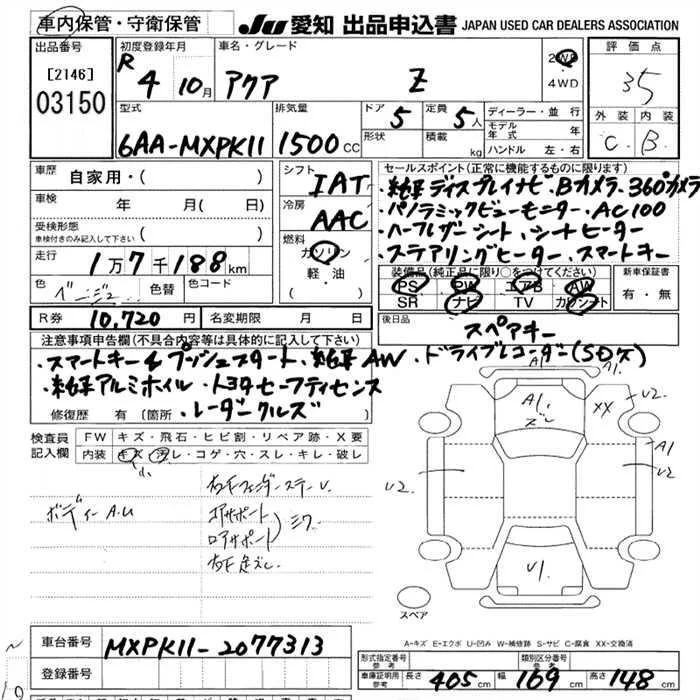 車内保管・守衛保管
JU 愛知 出品申込書 JAPAN USED CAR DEALERS ASSOCIATION
出品番号 [2146] 03150
初度登録年月 R 4 10月
車名・グレード アクア Z
2WD 4WD
評価点 35
外装 内装
C. B.
型式 6AA-MXPK11
排気量 1500 CC
ドア 5 定員 5人
形状 積載 kg
ディーラー・並行
モデル年式 年
ハンドル 左・右
車歴 自家用・( )
車検 年 月( 日)
受検形態 車検付きのみ記入して下さい ( )
走行 1万7千188km
色 ベージュ 色替 色コード
シフト IAT
冷房 AAC
燃料 ガソリン 軽油
セールスポイント(正常に機能するものに限ります)
・純正ディスプレイナビ・Bカメラ・360°カメラ
・パノラミックビューモニター・AC100
・ハーフレザーシート・シートヒーター
・ステアリングヒーター・スマートキー
装備品(純正品に限り○をつけてください)
PS PW エアB AW
SR ナビ TV カワシート
新車保証書 有・無
R券 10,720円 名変期限 月 日
後日品 スペアキー
注意事項申告欄(不具合内容等は具体的に記入して下さい)
・スマートキー&プッシュスタート・純正AW・ドライブレコーダー(SD欠)
・純正アルミホイル・トヨタセーフティセンス
修復歴 有(箇所 ・レーダークルズ
検査員記入欄
FW キズ・飛石・ヒビ割・リペア跡・X要
内装 キズ・汚レ・コゲ・穴・スレ・キレ・破レ
小
ボディーA.U
右FフェンダーステーU.
コアサポート
ロアサポート
ミク
A1.
A1. ズレ
XX
U2.
A1
U2.
U2.
U1.
スペア
A-キズ E-エクボ U-凹み W-補修跡 S-サビ C-腐食 XX-交換済
車台番号 MXPK11-2077313
登録番号
形式指定番号 参考
類別区分番号 参考
車庫証明用 参考 長さ 405cm 幅 169cm 高さ 148cm